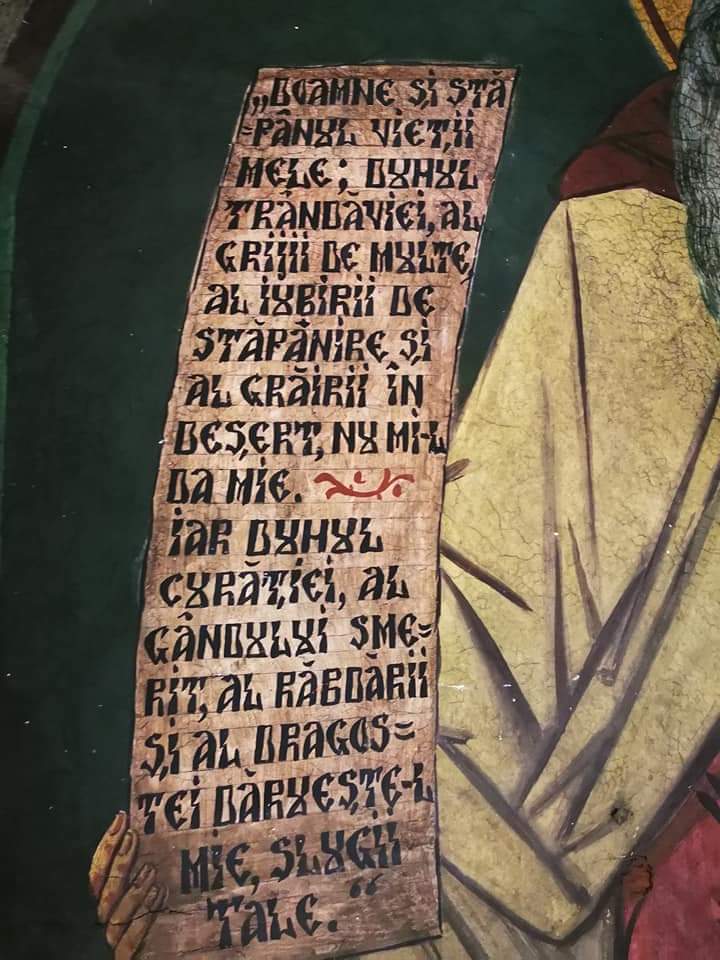 „DOAMNE ȘI STĂ
=PÂNUL VIEȚII
MELE; DUHUL
TRÂNDĂVIEI, AL
GRIJII DE MULTE,
AL IUBIRII DE
STĂPÂNIRE ȘI
AL GRĂIRII ÎN
DEȘERT, NU MI-L
DA MIE.
IAR DUHUL
CURĂȚIEI, AL
GÂNDULUI SME=
RIT, AL RĂBDĂRII
ȘI AL DRAGOS=
TEI DĂRUEȘTE-L
MIE, SLUGII
TALE.“